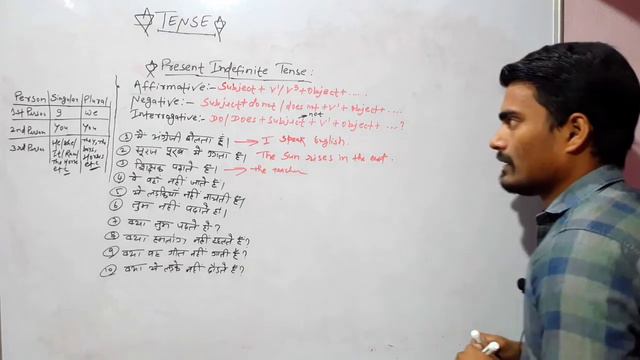 TENSE
Present Indefinite Tense:
Affirmative:- Subject + V¹/V⁵ + Object + .....
Negative:- Subject + do not / does not + V¹ + Object + ....
Interrogative:- Do / Does + Subject + not + V¹ + Object + .... ?
Person Singular Plural
1st Person I We
2nd Person You You
3rd Person He/She/
etc etc
① मैं अंग्रेजी बोलता हूँ। → I speak English.
② सूरज पूरब में उगता है। The Sun rises in the east.
③ शिक्षक पढ़ाते हैं। → the teacher
④ वे वहाँ नहीं जाते हैं।
⑤ ये लड़कियाँ नहीं नाचती हैं।
⑥ तुम नहीं पढ़ाते हो।
⑦ क्या तुम पढ़ते हो?
⑧ क्या नहीं खेलते हैं?
⑨ क्या वह गीत नहीं गाती है?
⑩ क्या ये लड़के नहीं दौड़ते हैं?